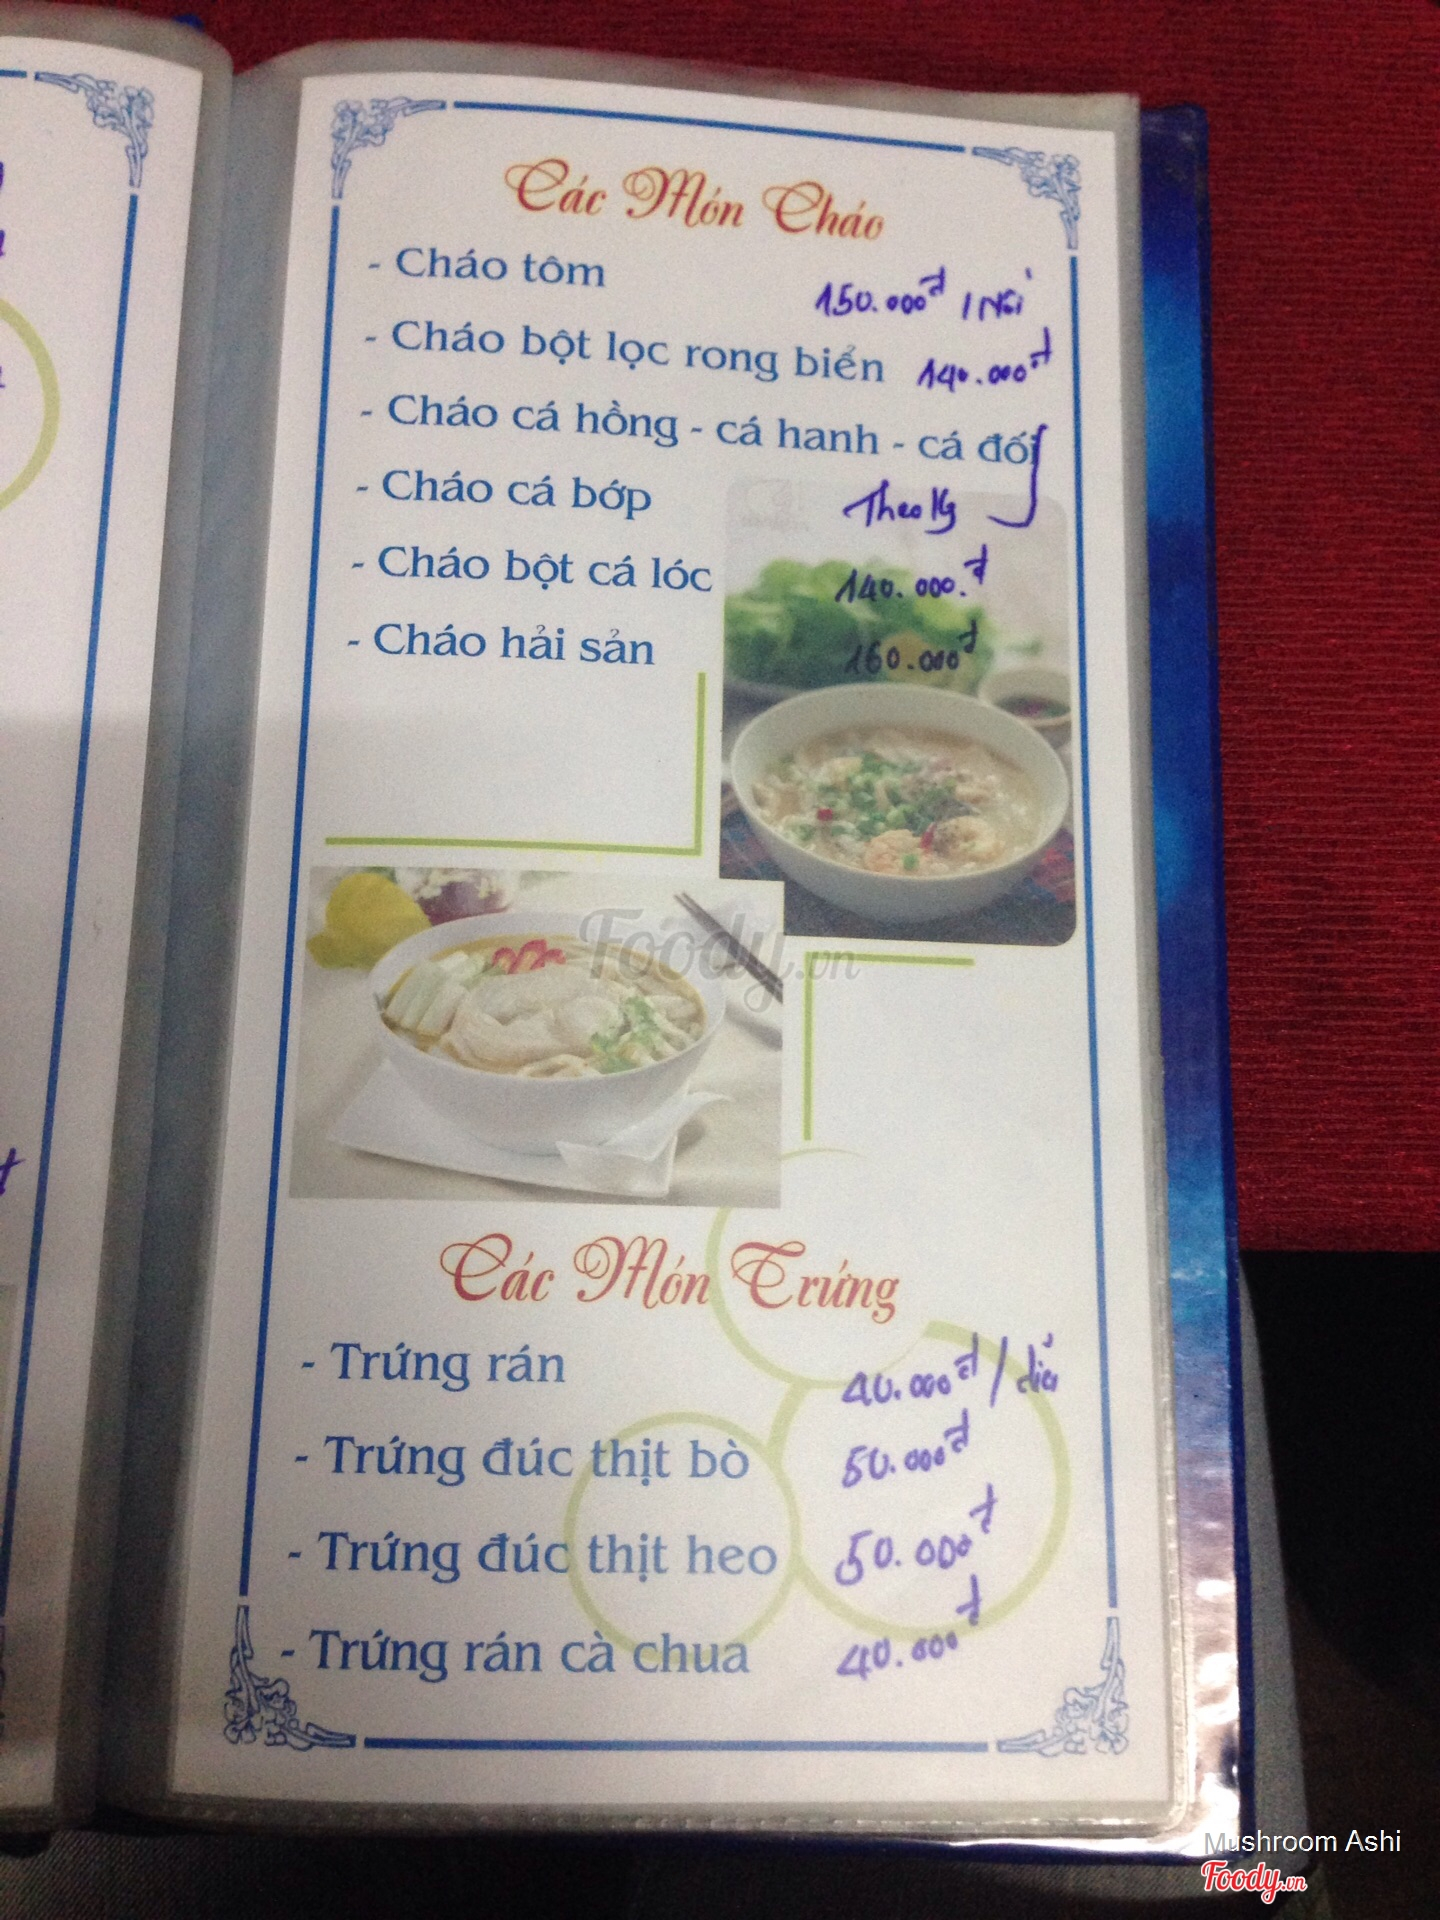 Các Món Cháo
- Cháo tôm 150.000đ 1 Nồi
- Cháo bột lọc rong biển 140.000đ
- Cháo cá hồng - cá hanh - cá đối
- Cháo cá bớp Theo Kg
- Cháo bột cá lóc 140.000.đ
- Cháo hải sản 160.000đ
Foody.vn
Các Món Trứng
- Trứng rán 40.000đ / dĩa
- Trứng đúc thịt bò 50.000đ
- Trứng đúc thịt heo 50.000đ
- Trứng rán cà chua 40.000đ
Mushroom Ashi
Foody.vn